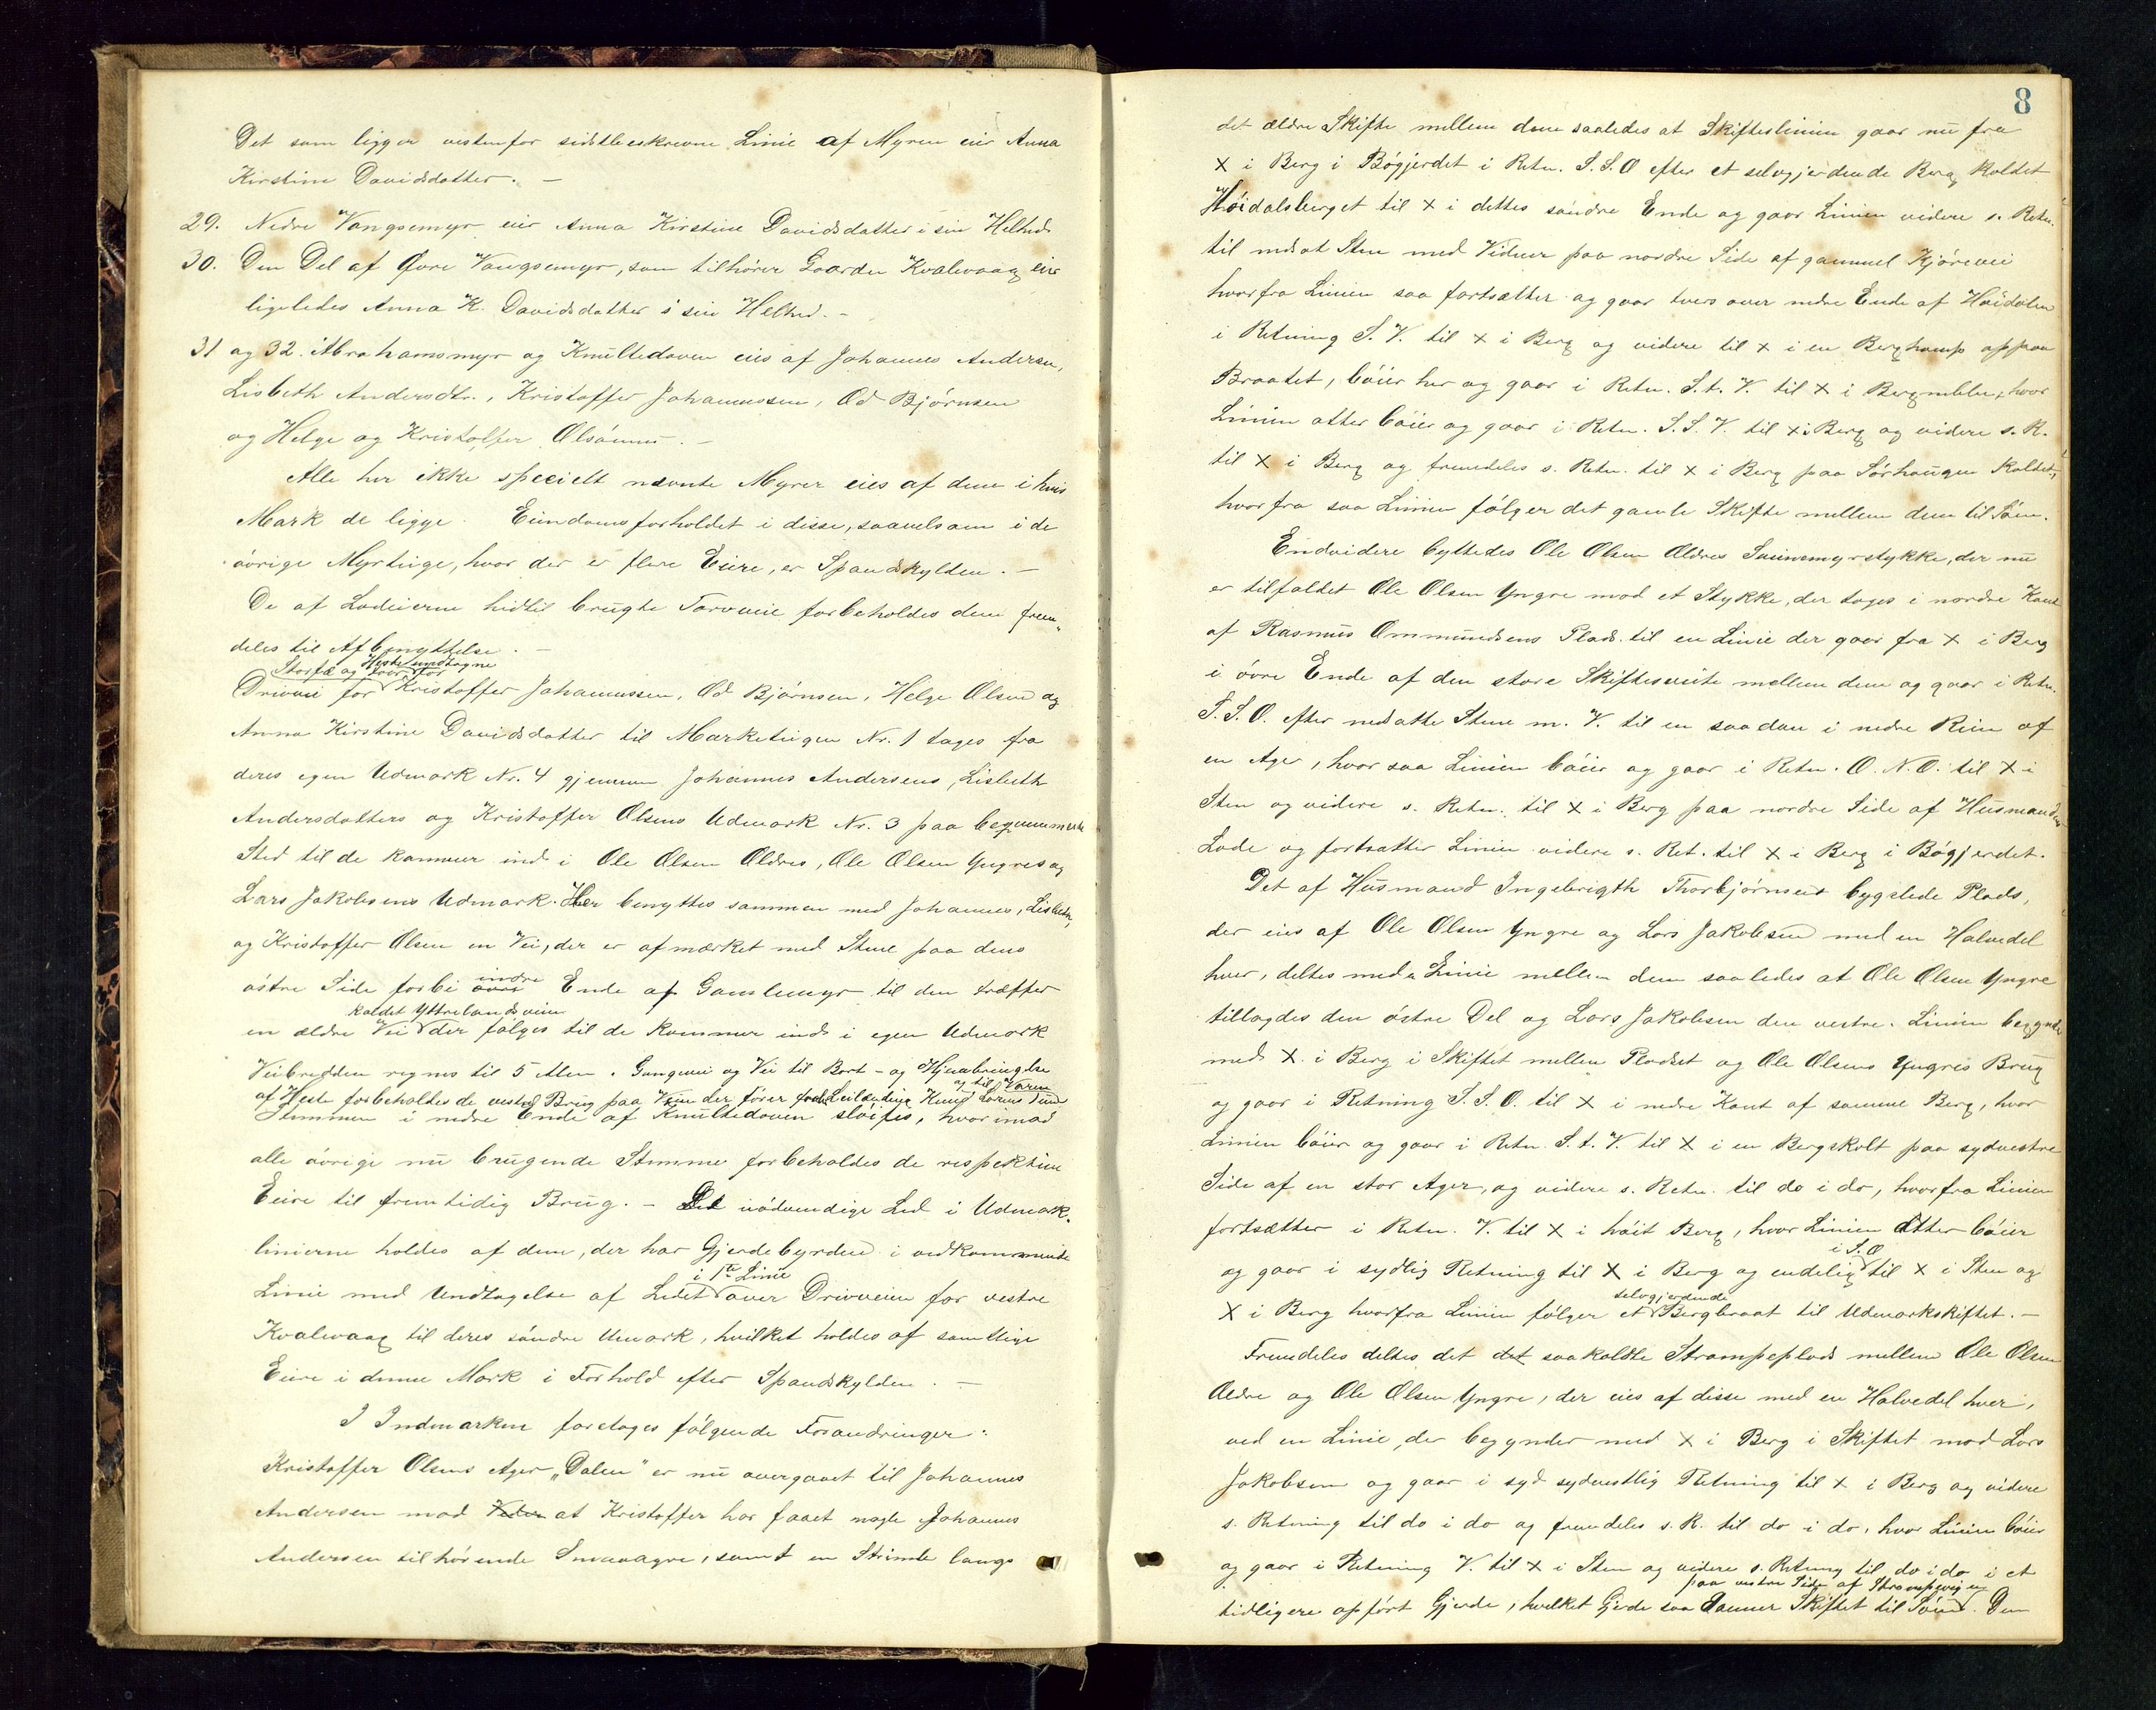 Det som ligger vestenfor sidstbeskrevne Linie af Myren eier Anna
Kirstine Davidsdatter. –
29. Nedre Vangsemyr eier Anna Kirstine Davidsdatter i sin Helhed
30. Den Del af Øvre Vangsemyr, som tilhører Gaarden Kvalvaag eier
ligeledes Anna K. Davidsdatter i sin Helhed. –
31 og 32. Abrahamsmyr og Knultedoven eies af Johannes Andersen,
Lisbeth Andersdtr., Kristoffer Johannessen, Od Bjørnsen
og Helge og Kristoffer Olsønner. –
Alle her ikke specielt nævnte Myrer eies af dem i hvis
Mark de ligge. Eiendomsforholdet i disse, saavelsom i de
øvrige Myrteige, hvor der er flere Eiere, er Spandskylden. –
De af Lodeierne hidtil brugte Torvveie forbeholdes dem frem-
deles til Afbenyttelse. –
Storfæ og Heste undtagne
Faar for
Drivvei for Kristoffer Johannessen, Od Bjørnsen, Helge Olsen og
Anna Kirstine Davidsdatter til Marketeigen Nr. 1 tages fra
deres egen Udmark Nr. 4 gjennem Johannes Andersens, Lisbeth
Andersdatters og Kristoffer Olsens Udmark Nr. 3 paa beqvemmeste
Sted til de kommer ind i Ole Olsen Ældres, Ole Olsen Yngres og
Lars Jakobsens Udmark. Her benyttes sammen med Johannes, Lisbeth,
og Kristoffer Olsen en Vei, der er afmærket med Stene paa dens
indre
østre Side forbi øvre Ende af Gamlemyr til den træffer
kaldet Yttrelandsveien
en ældre Vei der følges til de kommer ind i egen Udmark
Veibredden regnes til 5 Alen. Gangvei og Vei til Bort- og Hjembringelse
og til Varene
af Heste forbeholdes de vestre Brug paa Veien der fører
Stemmen i nedre Ende af Knultedoven sløifes, hvorimod
alle øvrige nu brugende Stemme forbeholdes de respektive
Eiere til fremtidig Brug. – De nødvendige Led i Udmark-
linierne holdes af dem, der har Gjerdebyrden i vedkommende
i 1ste Linie
Linie med Undtagelse af Ledet over Drivveien for vestre
Kvalvaag til deres søndre Umark, hvilket holdes af samtlige
Eiere i denne Mark i Forhold efter Spandskylden. –
I Indmarken foretages følgende Forandringer:
Kristoffer Olsens Ager „Dalen" er nu overgaaet til Johannes
Andersen mod at Kristoffer har faaet nogle Johannes
Andersen tilhørende Smaaagre, samt en Strimle langs
8
det ældre Skifte mellem dem saaledes at Skifteslinien gaar nu fra
X i Berg i Bøgjerdet i Retn. S.S.O efter et selvgjerdende Berg kaldet
Høidalsberget til X i dettes søndre Ende og gaar Linien videre s. Retn.
til nedsat Sten med Vidner paa nordre Side af gammel Kjørevei
hvorfra Linien saa fortsætter og gaar tvers over nedre Ende af Høidalen
i Retning S.V. til X i Berg og videre til X i en Berghamp oppaa
Braatet, bøier her og gaar i Retn. S.t.V. til X i Bergnebbe, hvor
Linien atter bøier og gaar i Retn. S.S.V. til X i Berg og videre s. R.
til X i Berg og fremdeles s. Retn. til X i Berg paa Sørhaugen kaldet,
hvorfra saa Linien følger det gamle Skifte mellem dem til Søen.
Endvidere byttedes Ole Olsen Ældres Svinemyrstykke, der nu
er tilfaldet Ole Olsen Yngre mod et Stykke, der tages i nordre Kant
af Rasmus Ommundsens Plads til en Linie der gaar fra X i Berg
i øvre Ende af den store Skiftesveite mellem dem og gaar i Retn.
S.S.O. efter nedsatte Stene m. V. til en saadan i nedre Rein af
en Ager, hvor saa Linien bøier og gaar i Retn. O.N.O. til X i
Sten og videre s. Retn. til X i Berg paa nordre Side af Husmandens
Lade og fortsætter Linien videre s. Ret. til X i Berg i Bøgjerdet.
Det af Husmand Ingebrigth Thorbjørnsen bygslede Plads,
der eies af Ole Olsen Yngre og Lars Jakobsen med en Halvedel
hver, deltes med Linie mellem dem saaledes at Ole Olsen Yngre
tillagdes den østre Del og Lars Jakobsen den vestre. Linien begynder
med X i Berg i Skiftet mellem Pladset og Ole Olsens Yngres Brug
og gaar i Retning S.S.O. til X i nedre Kant af samme Berg, hvor
Linien bøier og gaar i Retn. S.t.V. til X i en Bergskolt paa sydvestre
Side af en stor Ager, og videre s. Retn. til do i do, hvorfra Linien
fortsætter i Retn. V. til X i høit Berg, hvor Linien atter bøier
i S.O
og gaar i sydlig Retning til X i Berg og endelig til X i Sten og
selvgjerdende
X i Berg hvorfra Linien følger et Bergbraat til Udmarkskiftet. –
Fremdeles deltes det det saakaldte Strampeplads mellem Ole Olsen
Ældre og Ole Olsen Yngre, der eies af disse med en Halvedel hver,
ved en Linie, der begynder med X i Berg i Skiftet mod Lars
Jakobsen og gaar i syd sydvestlig Retning til X i Berg og videre
s. Retning til do i do og fremdeles s. R. til do i do, hvor Linien bøier
og gaar i Retning V. til X i Sten og videre s. Retning til do i do i et
paa vestre Side af Strampevigen
tidligere opført Gjerde, hvilket Gjerde saa danner Skiftet til Søen. Den